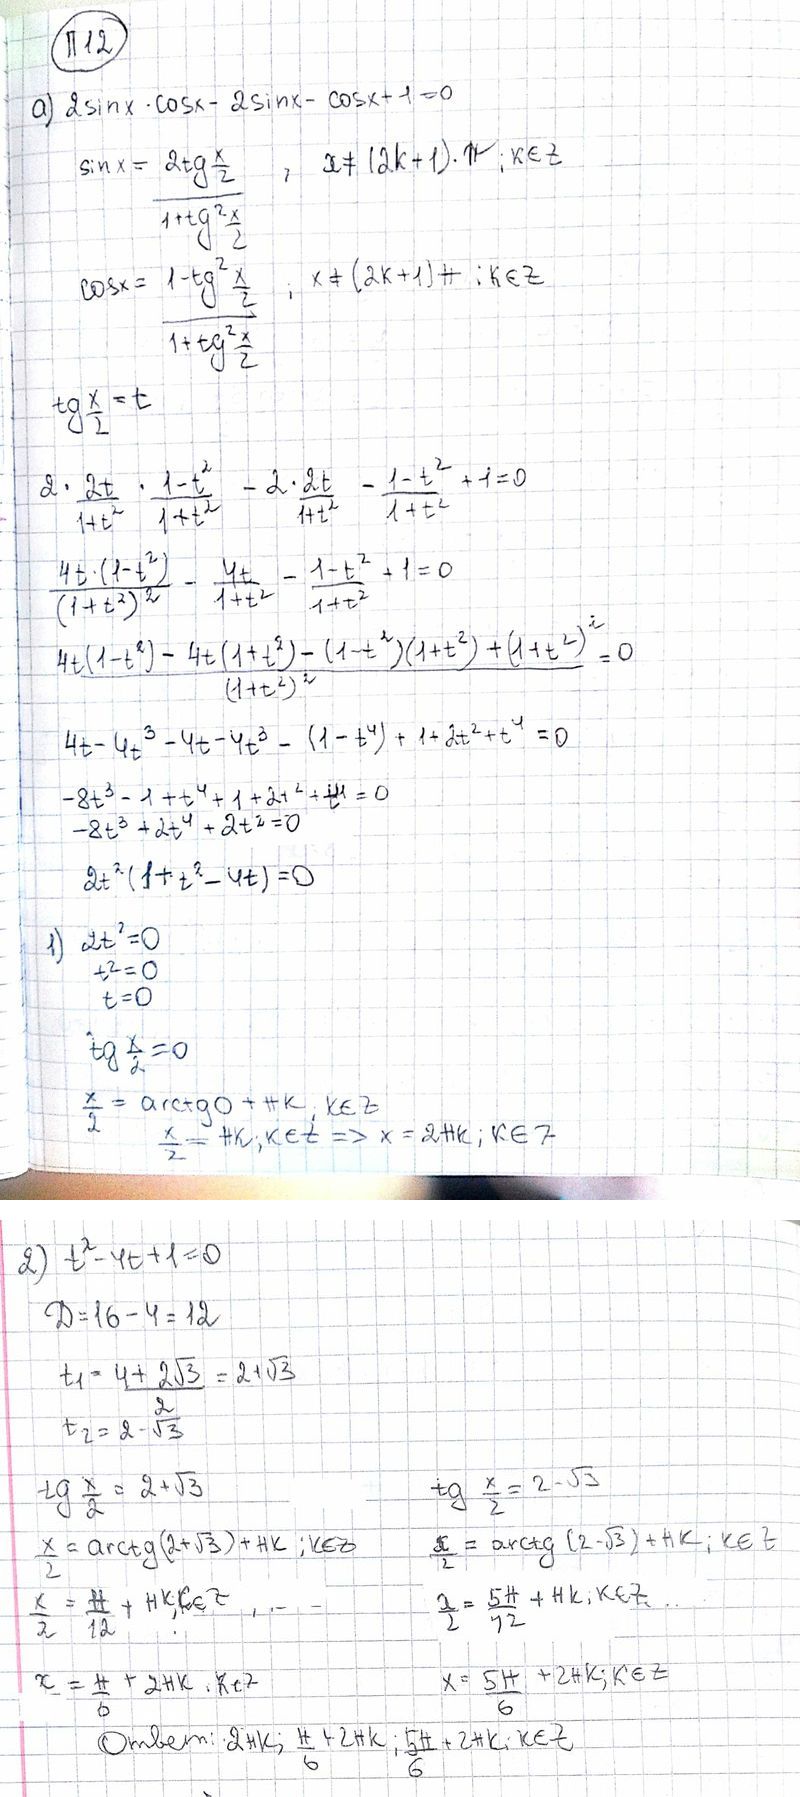 П12
а) 2sinx·cosx - 2sinx - cosx + 1 = 0
sinx = 2tg x/2 / (1+tg² x/2) , x ≠ (2k+1)·π ; k∈Z
cosx = 1-tg² x/2 / (1+tg² x/2) ; x ≠ (2k+1)π ; k∈Z
tg x/2 = t
2 · 2t/(1+t²) · (1-t²)/(1+t²) - 2 · 2t/(1+t²) - (1-t²)/(1+t²) + 1 = 0
4t·(1-t²)/(1+t²)² - 4t/(1+t²) - (1-t²)/(1+t²) + 1 = 0
(4t(1-t²) - 4t(1+t²) - (1-t²)(1+t²) + (1+t²)²)/(1+t²)² = 0
4t - 4t³ - 4t - 4t³ - (1-t⁴) + 1 + 2t² + t⁴ = 0
-8t³ - 1 + t⁴ + 1 + 2t² + t⁴ = 0
-8t³ + 2t⁴ + 2t² = 0
2t²(1 + t² - 4t) = 0
1) 2t² = 0
t² = 0
t = 0
tg x/2 = 0
x/2 = arctg0 + πk, k∈Z
x/2 = πk ; k∈Z => x = 2πk ; k∈Z
2) t² - 4t + 1 = 0
D = 16 - 4 = 12
t₁ = (4 + 2√3)/2 = 2+√3
t₂ = 2 - √3
tg x/2 = 2+√3 tg x/2 = 2-√3
x/2 = arctg(2+√3) + πk ; k∈Z x/2 = arctg(2-√3) + πk ; k∈Z
x/2 = π/12 + πk, k∈Z x/2 = 5π/12 + πk ; k∈Z
x = π/6 + 2πk , k∈Z x = 5π/6 + 2πk ; k∈Z
Ответ: 2πk ; π/6 + 2πk ; 5π/6 + 2πk ; k∈Z